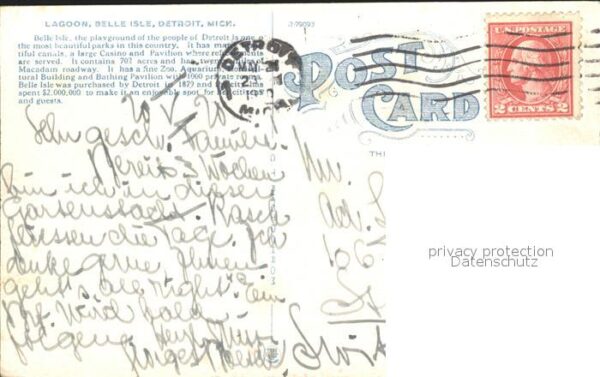 LAGOON, BELLE ISLE, DETROIT, MICH.
Belle Isle, the playground of the people of Detroit is one of
the most beautiful parks in this country. It has many
tiful canals, a large Casino and Pavilion where refreshments
are served. It contains 707 acres and has twenty miles of
Macadam roadway. It has a fine Zoo, Aquarium, Horticul-
tural Building and Bathing Pavilion with 1000 private rooms.
Belle Isle was purchased by Detroit in 1879 and the citizens
spent $2,000,000 to make it an enjoyable spot for
and guests.
DETROIT
MICH
POST
CARD
U.S. POSTAGE
2 CENTS 2
TH
Sehr geschr. Familie!
Bereits 3 Wochen
bin ich in dieser
Gartenstadt. Rasch
fliessen die Tage. Ich
denke gerne Ihnen
geht's all right. Ein
wird bald
folgen. Herzl.
Ad.
privacy protection
Datenschutz